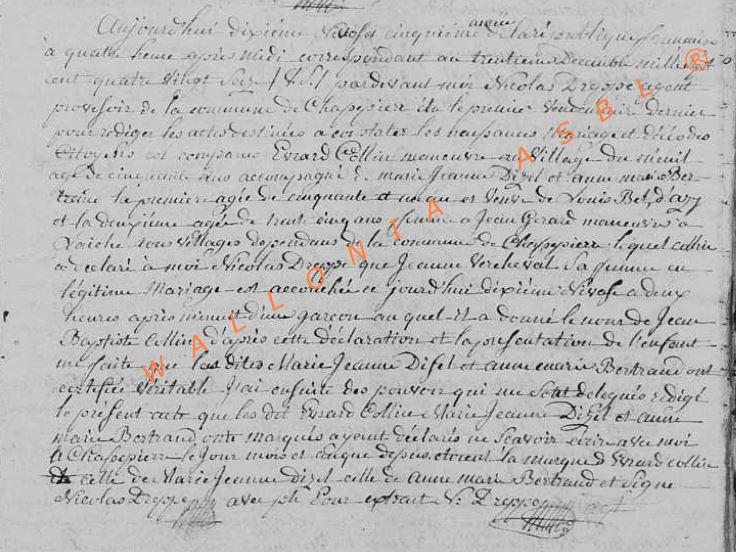 Aujourd'hui dixième Nivose cinquième année de la république francaise
à quatre heure après midi correspondant au trentieme Decembre mille sept
cent quatre vingt seize pardevant moi Nicolas Dreppe agent
provisoir de la commune de Chassepierre élu le premier Vendemiair dernier
pour rediger les actes destinées a constater les naissances Mariage et décès des
Citoyens est comparus Evrard Collin maneuvre au Village du ménil
agé de cinquante ans accompagné de marie Jeanne Difel et anne marie Ber-
la premiere agée de cinquante et Veuve de Louis
et la deuxième agée de trent cinq ans femme a Jean Gerard maneuvre à
Laiche tous villages dependans de la commune de Chassepierre lequel Collin
a déclaré à moi Nicolas Dreppe que Jeanne Vercheval Sa femme en
légitime Mariage est accouchée ce jourd'hui dixième Nivose a deux
heures après minuit d'une garcon au quel il a donné le nom de Jean
Baptist Collin d'après cette déclaration et la présentation de l'enfant
me faite que les dites Marie Jeanne Difel et anne marie Bertrand ont
certifiée Véritable J'ai ensuite des pouvoir qui me Sont delegués rédigé
le présent acte que les dit Evrard Collin Marie Jeanne Difel et anne
marie Bertrand ont marqués ayant déclarés ne Scavoir écrir avec moi
a Chassepierre le Jour mois et que dessus étoient la marque d'Evrard Collin
celle de Marie Jeanne difel celle de anne marie Bertrand et signe
Nicolas Dreppe avec ph Pour extrait N: Dreppe
WALLONIA ASBL ®